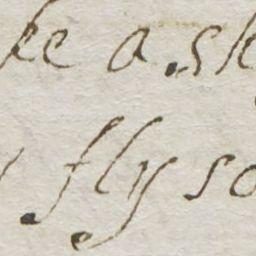 ke a sk
y fly so